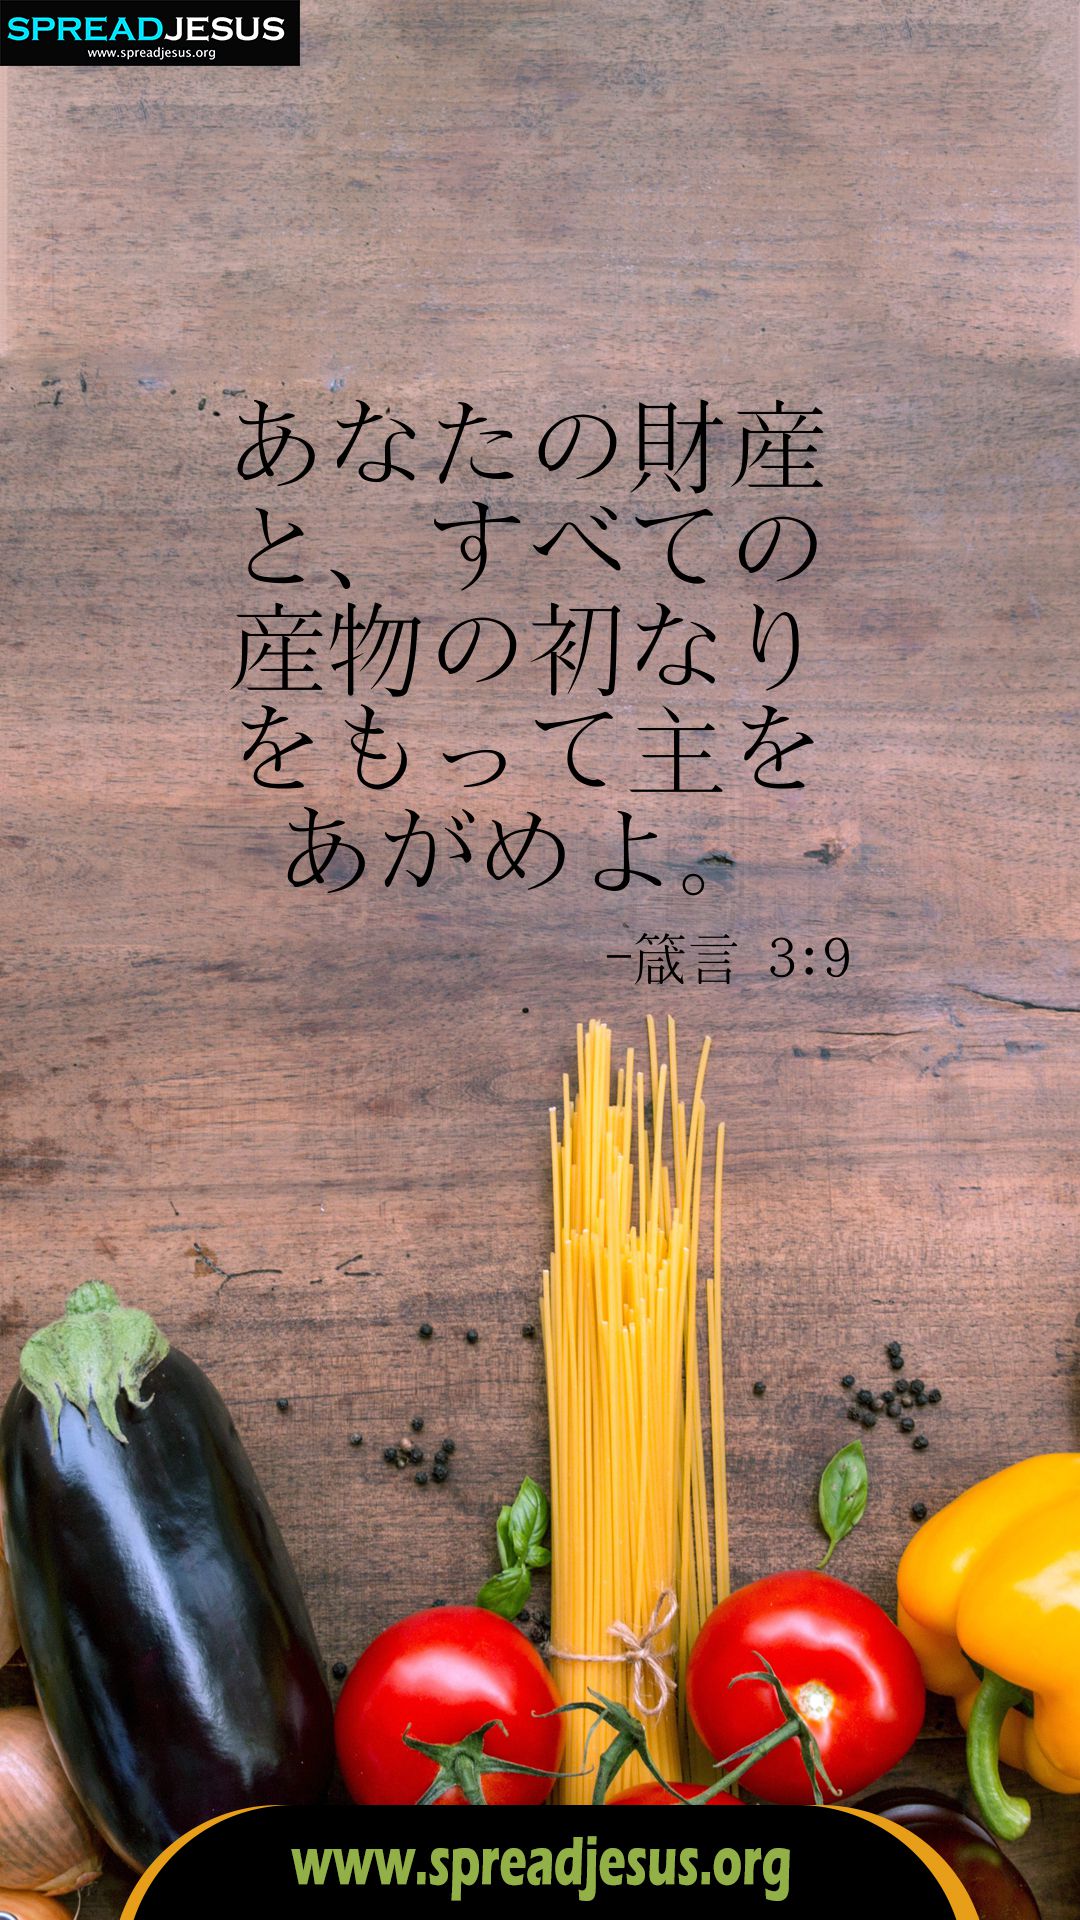 SPREADJESUS
www.spreadjesus.org
あなたの財産
と、すべての
産物の初なり
をもって主を
あがめよ。
-箴言 3:9
www.spreadjesus.org